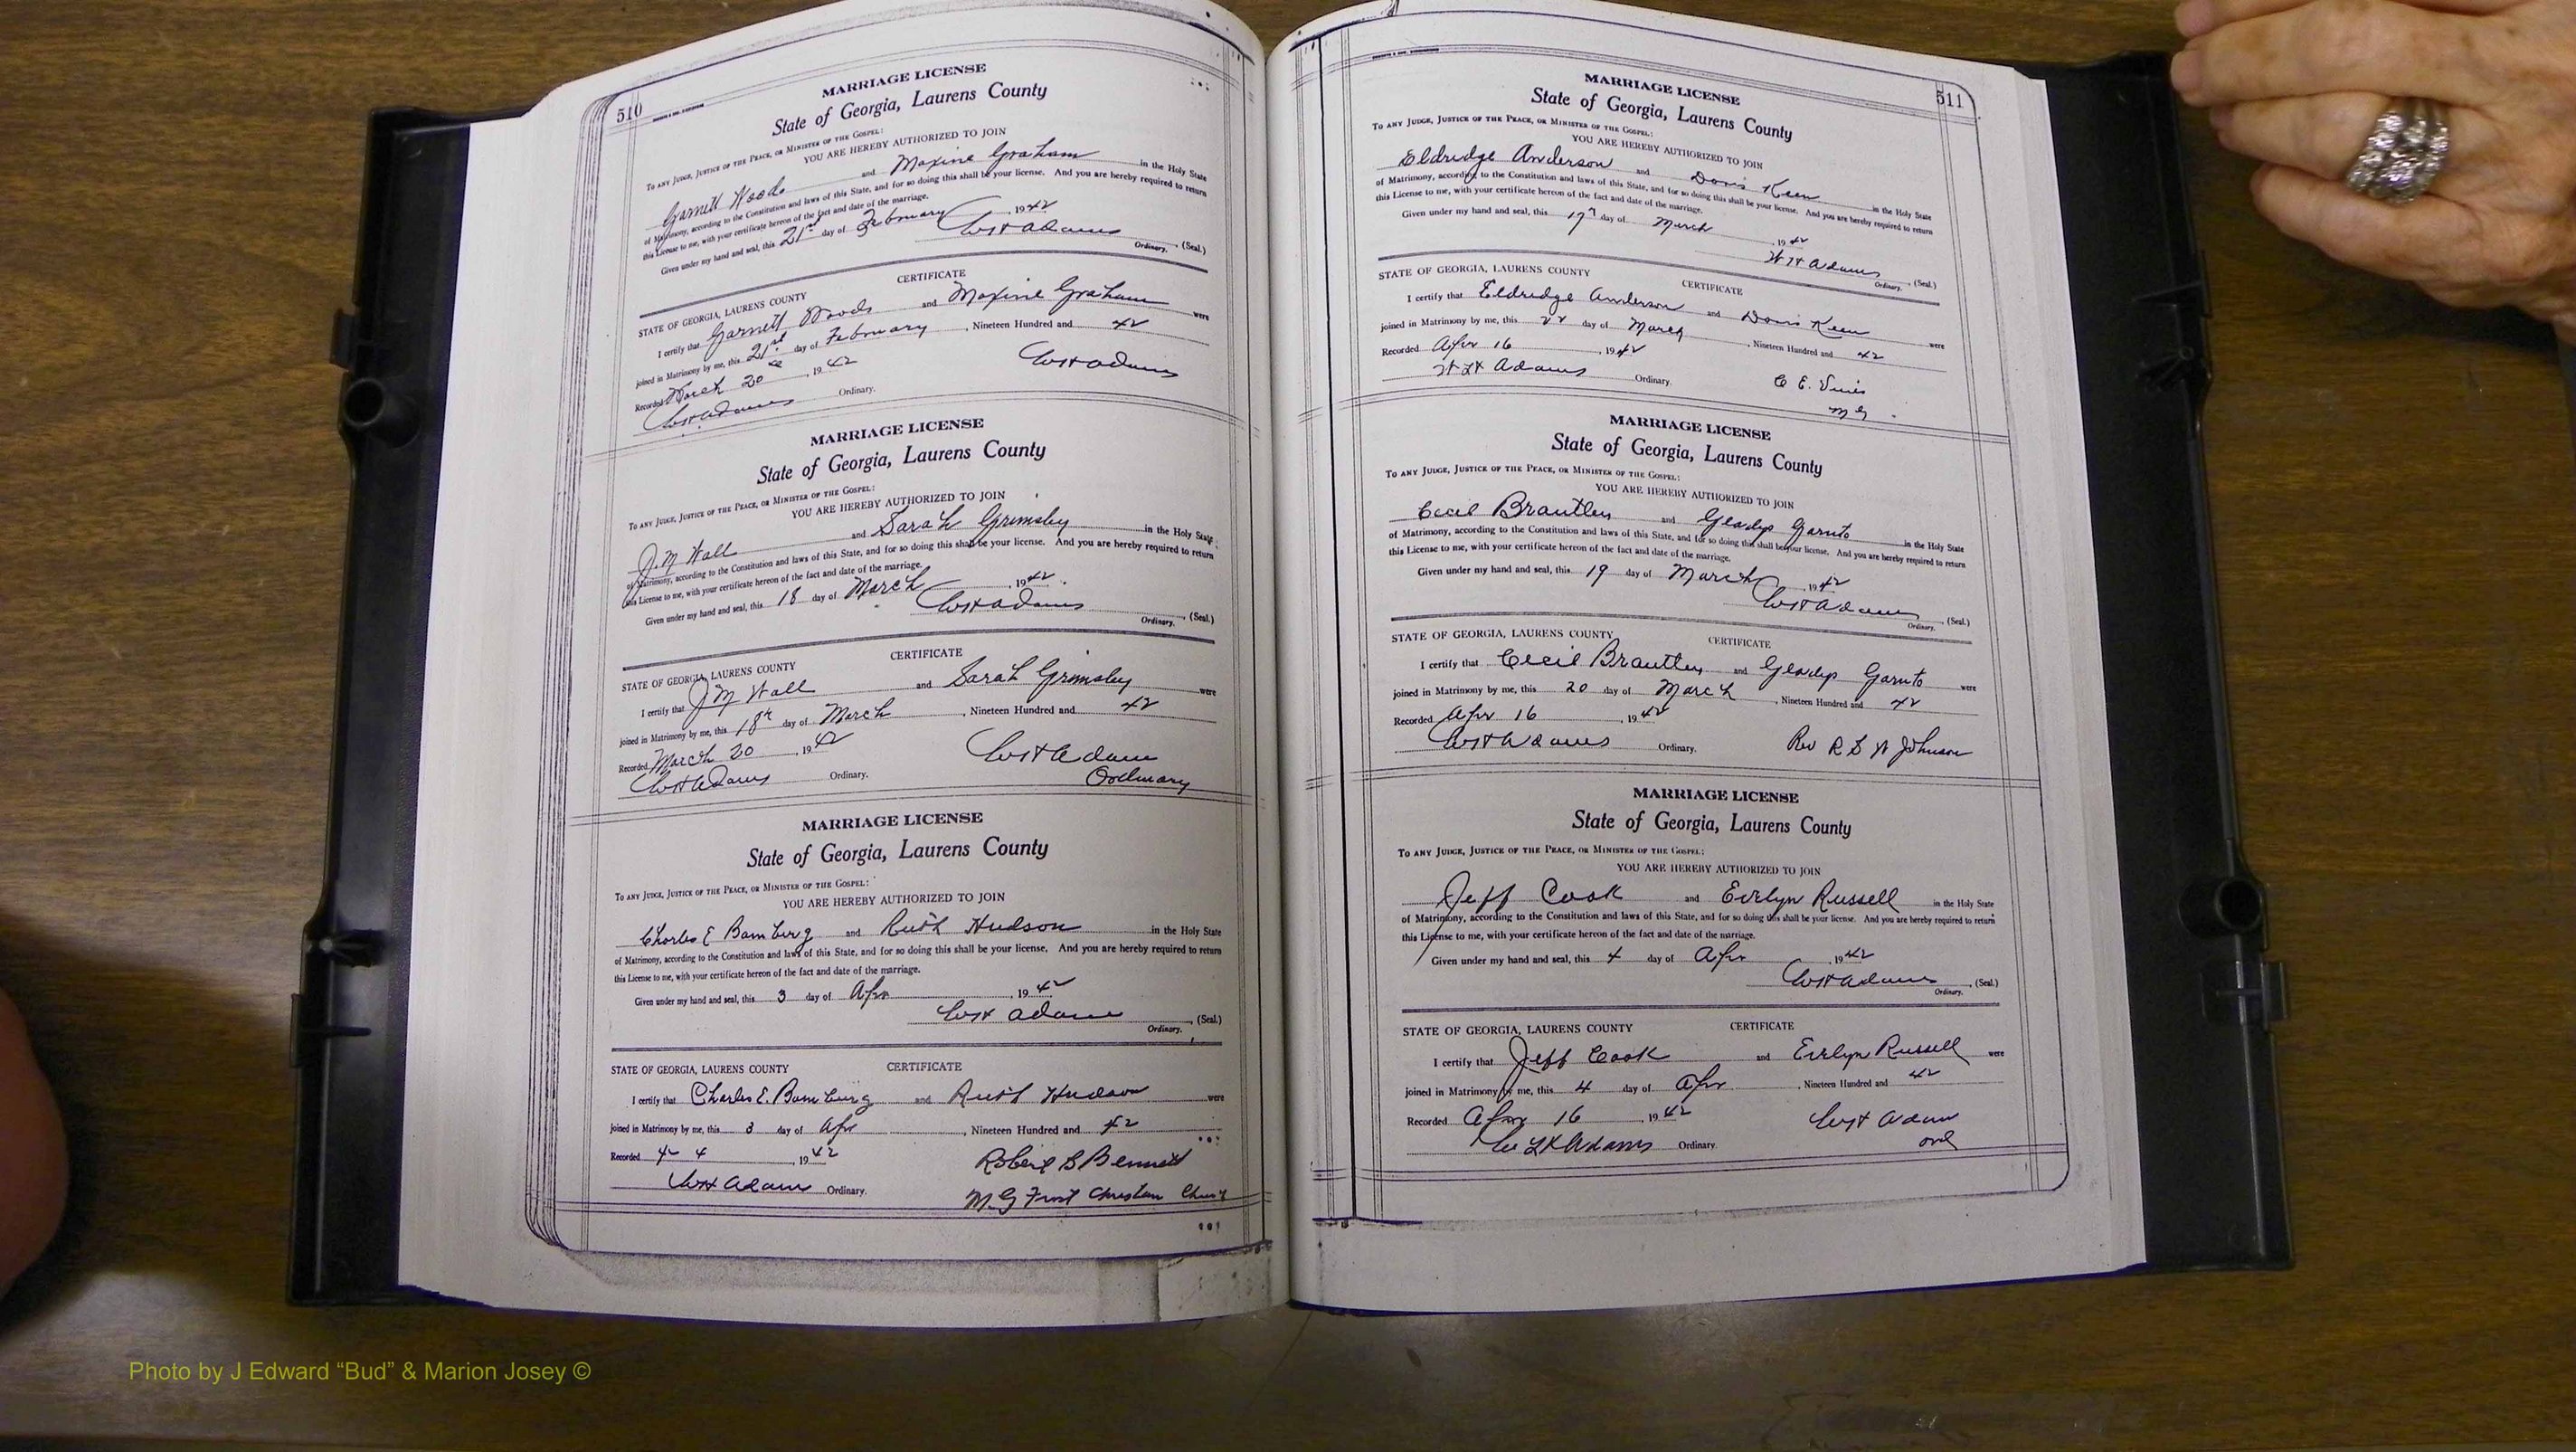 510
MARRIAGE LICENSE
State of Georgia, Laurens County
To any Judge, Justice of the Peace, or Minister of the Gospel:
YOU ARE HEREBY AUTHORIZED TO JOIN
Garnett Woods and Maxine Graham in the Holy State
of Matrimony, according to the Constitution and laws of this State, and for so doing this shall be your license. And you are hereby required to return
this License to me, with your certificate hereon of the fact and date of the marriage.
Given under my hand and seal, this 21st day of February, 1942
W H Adams, (Seal.)
Ordinary.
CERTIFICATE
STATE OF GEORGIA, LAURENS COUNTY
I certify that Garnett Woods and Maxine Graham were
joined in Matrimony by me, this 21st day of February, Nineteen Hundred and 42
Recorded March 20, 1942
W H Adams
W H Adams Ordinary.
MARRIAGE LICENSE
State of Georgia, Laurens County
To any Judge, Justice of the Peace, or Minister of the Gospel:
YOU ARE HEREBY AUTHORIZED TO JOIN
J. M Wall and Sarah Grimsley in the Holy State
of Matrimony, according to the Constitution and laws of this State, and for so doing this shall be your license. And you are hereby required to return
this License to me, with your certificate hereon of the fact and date of the marriage.
Given under my hand and seal, this 18 day of March, 1942
W H Adams, (Seal.)
Ordinary.
CERTIFICATE
STATE OF GEORGIA, LAURENS COUNTY
I certify that J M Wall and Sarah Grimsley were
joined in Matrimony by me, this 18th day of March, Nineteen Hundred and 42
Recorded March 20, 1942
W H Adams
W H Adams Ordinary. Ordinary
MARRIAGE LICENSE
State of Georgia, Laurens County
To any Judge, Justice of the Peace, or Minister of the Gospel:
YOU ARE HEREBY AUTHORIZED TO JOIN
Charles E Bamburg and Ruth Hudson in the Holy State
of Matrimony, according to the Constitution and laws of this State, and for so doing this shall be your license. And you are hereby required to return
this License to me, with your certificate hereon of the fact and date of the marriage.
Given under my hand and seal, this 3 day of Apr, 1942
W H Adams, (Seal.)
Ordinary.
STATE OF GEORGIA, LAURENS COUNTY CERTIFICATE
I certify that Charles E. Bamburg and Ruth Hudson were
joined in Matrimony by me, this 3 day of Apr, Nineteen Hundred and 42
Recorded 4- 4, 1942 Robert S Bennett
W H Adams Ordinary. M. G First Christian
511
MARRIAGE LICENSE
State of Georgia, Laurens County
To any Judge, Justice of the Peace, or Minister of the Gospel:
YOU ARE HEREBY AUTHORIZED TO JOIN
Eldredge Anderson and Doris Keen in the Holy State
of Matrimony, according to the Constitution and laws of this State, and for so doing this shall be your license. And you are hereby required to return
this License to me, with your certificate hereon of the fact and date of the marriage.
Given under my hand and seal, this 17th day of March, 1942
W H Adams, (Seal.)
Ordinary.
STATE OF GEORGIA, LAURENS COUNTY CERTIFICATE
I certify that Eldredge Anderson and Doris Keen were
joined in Matrimony by me, this 22 day of March, Nineteen Hundred and 42
Recorded Apr 16, 1942
W H Adams Ordinary. C E.
M G
MARRIAGE LICENSE
State of Georgia, Laurens County
To any Judge, Justice of the Peace, or Minister of the Gospel:
YOU ARE HEREBY AUTHORIZED TO JOIN
Cecil Brantley and Gladys Garuto in the Holy State
of Matrimony, according to the Constitution and laws of this State, and for so doing this shall be your license. And you are hereby required to return
this License to me, with your certificate hereon of the fact and date of the marriage.
Given under my hand and seal, this 19 day of March, 1942
W H Adams, (Seal.)
Ordinary.
STATE OF GEORGIA, LAURENS COUNTY CERTIFICATE
I certify that Cecil Brantley and Gladys Garuto were
joined in Matrimony by me, this 20 day of March, Nineteen Hundred and 42
Recorded Apr 16, 1942
W H Adams Ordinary. Rev R S W Johnson
MARRIAGE LICENSE
State of Georgia, Laurens County
To any Judge, Justice of the Peace, or Minister of the Gospel:
YOU ARE HEREBY AUTHORIZED TO JOIN
Jeff Cook and Evelyn Russell in the Holy State
of Matrimony, according to the Constitution and laws of this State, and for so doing this shall be your license. And you are hereby required to return
this License to me, with your certificate hereon of the fact and date of the marriage.
Given under my hand and seal, this 4 day of Apr, 1942
W H Adams, (Seal.)
Ordinary.
STATE OF GEORGIA, LAURENS COUNTY CERTIFICATE
I certify that Jeff Cook and Evelyn Russell were
joined in Matrimony by me, this 4 day of Apr, Nineteen Hundred and 42
Recorded Apr 16, 1942 W H Adams
W H Adams Ordinary. Ord
Photo by J Edward “Bud” & Marion Josey ©